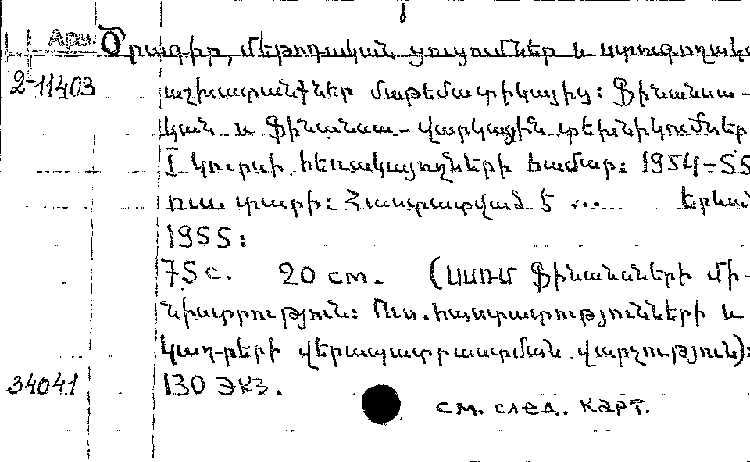 Арм. Ծրագիր, մեթոդական ցուցումներ և ստուգողակ
2-11403 աշխատանքներ մաթեմատիկայից: Ֆինանսա-
կան և ֆինանսա-վարկային տեխնիկումներ
I կուրսի հեռակայողների համար: 1954-55
ուս. տարի: Հաստատված է ... Երևան
1955:
75 с. 20 см. (ՍՍՌՄ ֆինանսների մի-
նիստրություն: Ուս. հաստատությունների և
կադրերի վերապատրաստման վարչություն):
34041 130 экз.
см. след. карт.